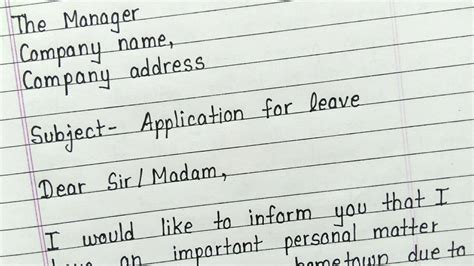 The Manager
Company name,
Company address
Subject- Application for leave
Dear Sir/Madam,
I would like to inform you that I
an important personal matter
hometown due to